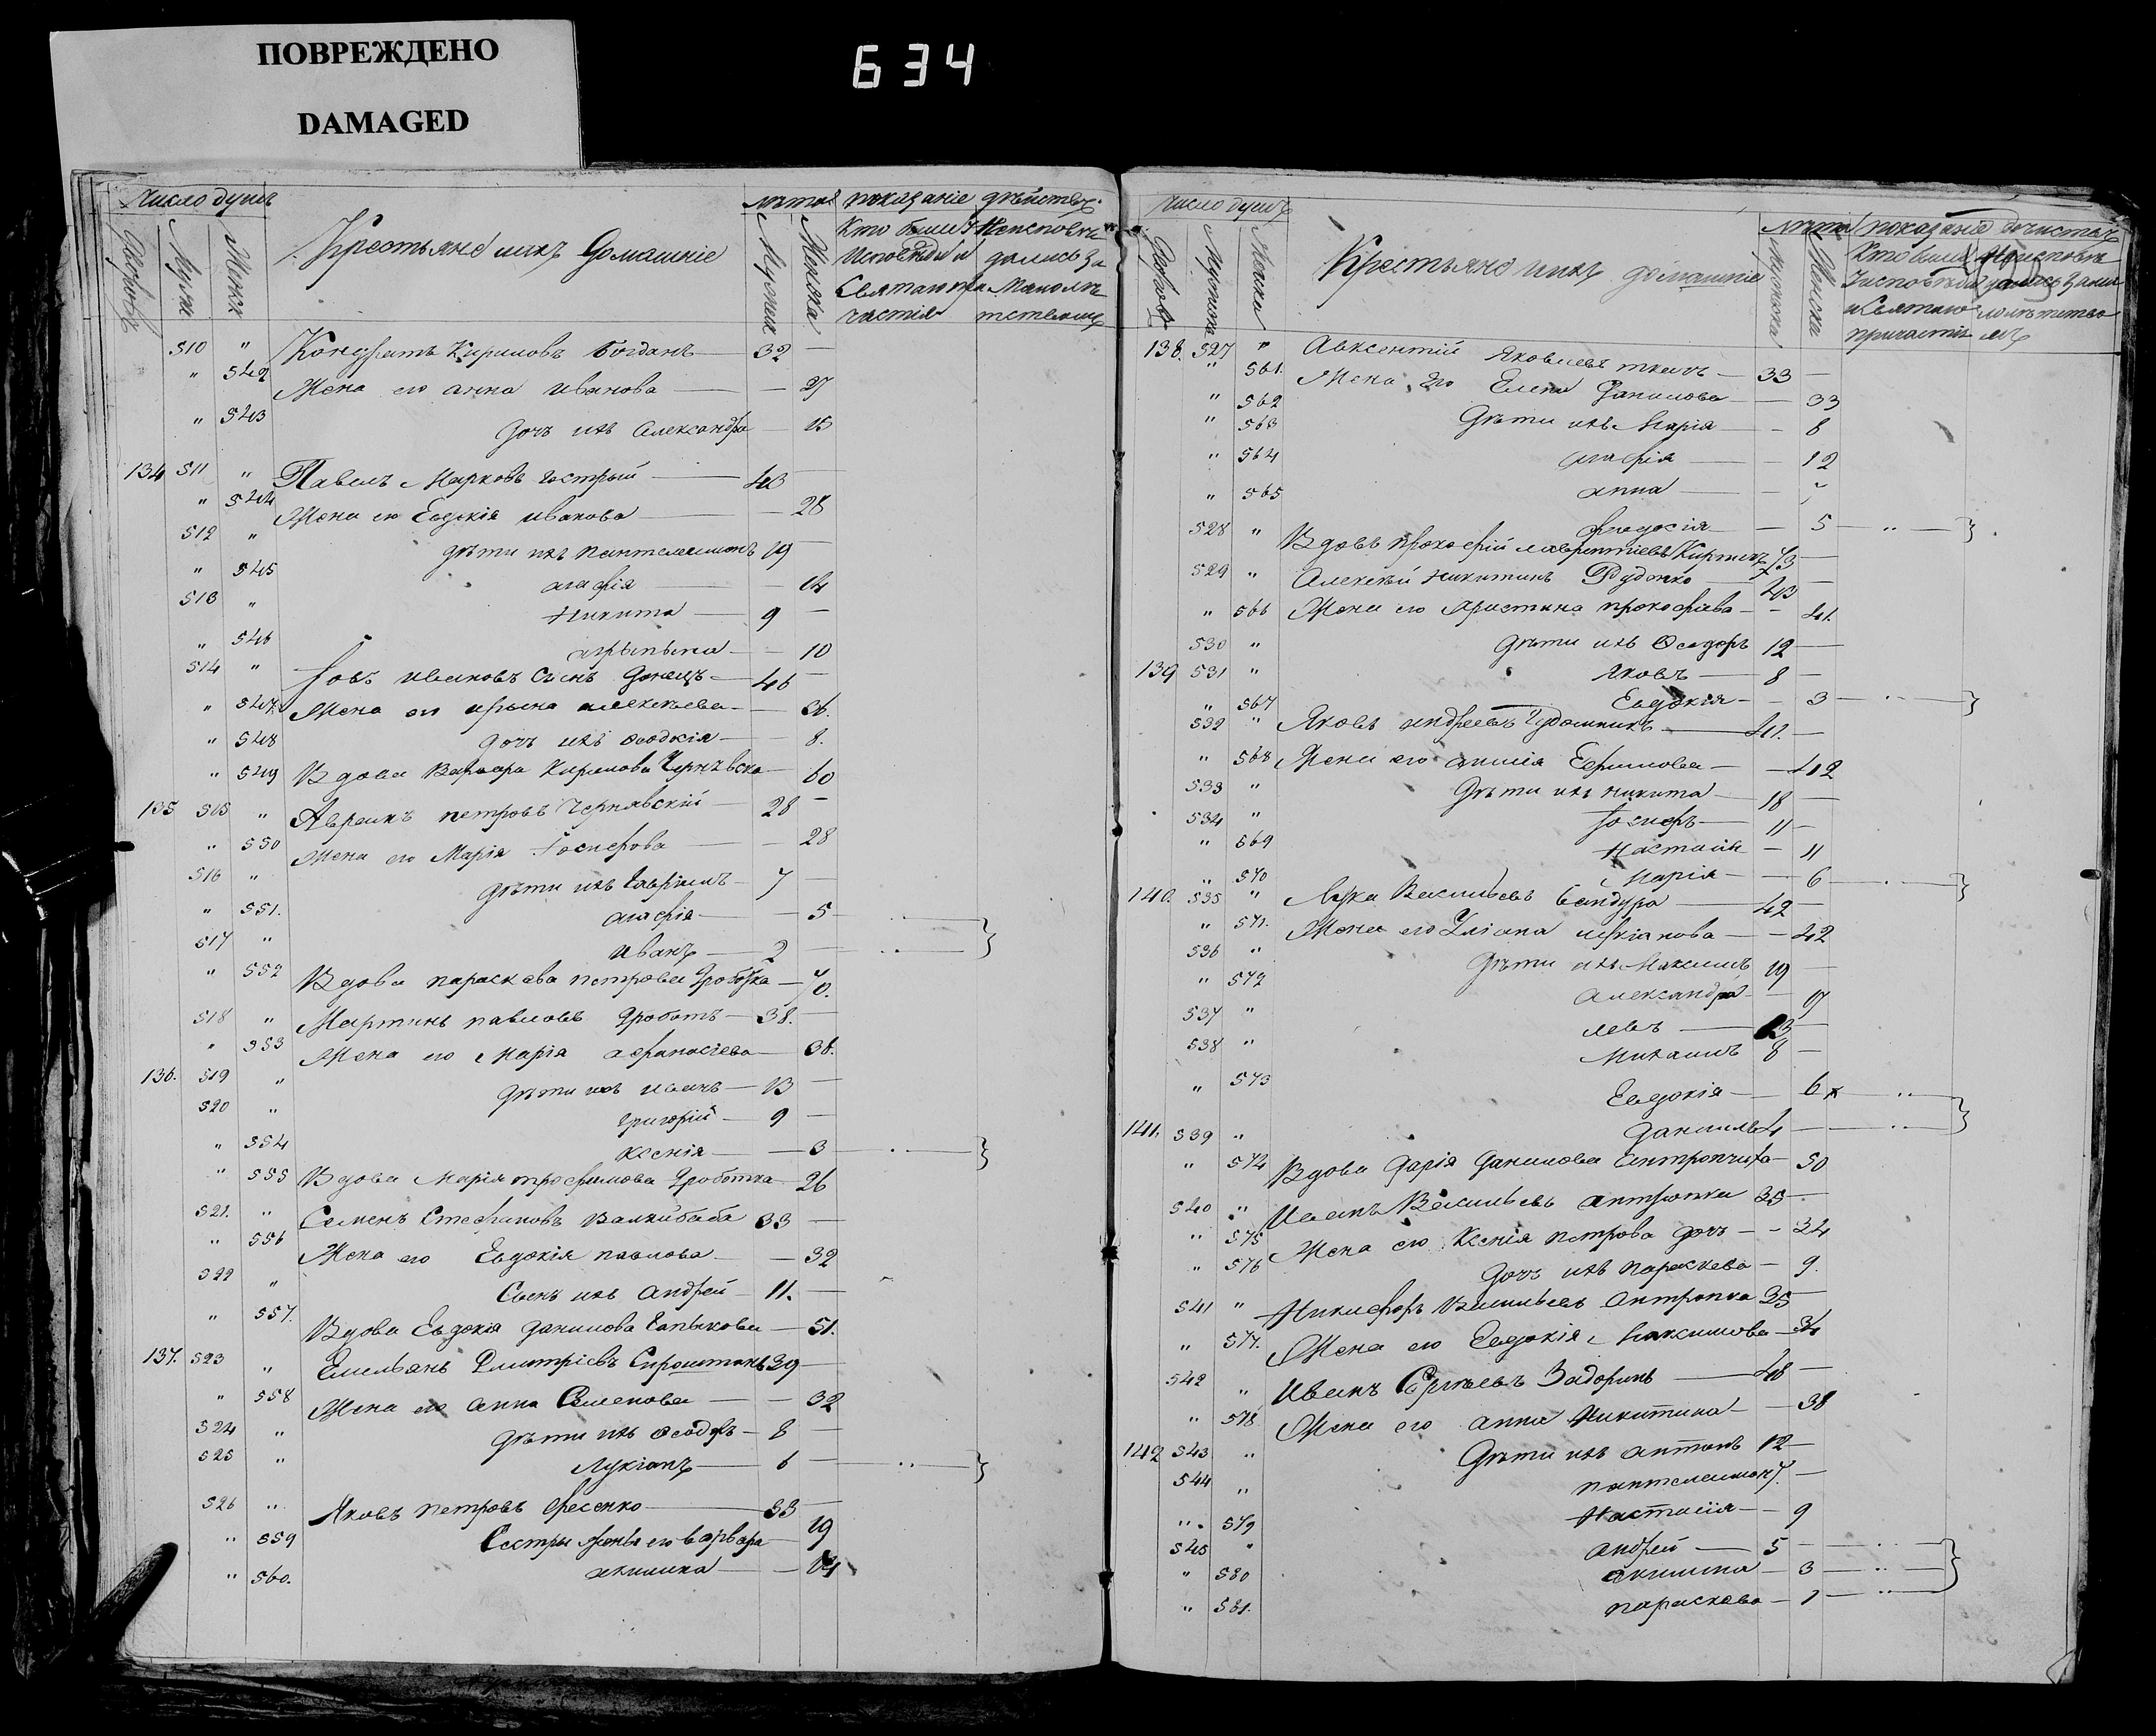 ПОВРЕЖДЕНО
DAMAGED
634
Число душъ
Дворовъ Мужск Женск
Крестьяне и ихъ домашніе
лѣта
Мужск Женска
показаніе дѣйствъ
Кто были у Исповѣди и Святаго причастія
Неисповѣдались за малолѣтствомъ
510 " Кондратъ Кириловъ Богданъ — 32 —
" 542 Жена его Анна Иванова — — 27
" 543 Дочъ ихъ Александра — 15
134 511 " Павелъ Марковъ Гострый — 43 —
" 544 Жена его Евдокія Иванова — — 28
512 " дѣти ихъ Пантелеимонъ 19 —
" 545 Агафія — — 14
513 " Никита — 9 —
" 546 Агрыпына — — 10
514 " Іовъ Ивановъ Сынъ Донецъ — 46 —
" 547 Жена его Ирына Алексѣева — — 36.
" 548 Дочъ ихъ Ѳеодосія — 8.
" 549 Вдова Варвара Кирилова Чернѣвска — 60
135 515 " Аврамъ Петровъ Чернявскій — 28 —
" 550 Жена его Марія Іосифова — — 28
516 " дѣти ихъ Гавріилъ — 7 —
" 551. Агафія — — 5 — ..
517 " Иванъ — 2 — .. }
" 552 Вдова Параскева Петрова Гроботка — 70.
518 " Мартинъ Павловъ Гроботъ — 38. —
" 553 Жена его Марія Афанасіева — 38.
136. 519 " дѣти ихъ Иванъ — 13 —
520 " Григорій — 9 —
" 554 Ксенія — — 3 — .. }
" 555 Вдова Марія Трофимова Гроботка — 26
521. " Семенъ Стефановъ 33 —
" 556 Жена его Евдокія Павлова — — 32
522 " Сынъ ихъ Андрей — 11. —
" 557. Вдова Евдокія Данилова — 51.
137. 523 " Емельянъ Дмитріевъ 39 —
" 558 Жена его Анна Семенова — — 32
524 " дѣти ихъ Ѳеодоръ — 8 —
525 " Лукіанъ — 6 — .. }
526 " Яковъ Петровъ Фесенко — 33 —
" 559 Сестры жены его Варвара — 19
" 560. Акилина — — 14
Число душъ
Дворовъ Мужска Женска
Крестьяне и ихъ домашніе
лѣта
Мужска Женска
показаніе дѣйствъ
Кто были у исповѣди и Святаго причастія
Неисповѣдались за малолѣтствомъ
138. 527 " Авксентій Яковлевъ Ткачъ — 33 —
" 561. Жена его Елена Данилова — — 33
" 562 Дѣти ихъ Марія — — 8
" 563
" 564 Агафія — — 12
" 565 Анна — — 7
Феодосія — — 5 — .. }
528 " Вдовъ Прокофій Лаврентіевъ 73 —
529 " Алексѣй Никитинъ Руденко — 43 —
" 566 Жена его Христина Прокофіева — — 41.
530 " Дѣти ихъ Ѳеодоръ 12 —
139 531 " Яковъ — 8 —
" 567 Евдокія — — 3 — .. }
532 " Яковъ Андреевъ — 41. —
" 568 Жена его Ефимова — — 42
533 " Дѣти ихъ Никита — 18 —
534 " Іосифъ — 11 —
" 569 Настасія — 11
" 570 Марія — — 6 — .. }
140. 535 " Лука Васильевъ Бандура — 42 —
" 571. Жена его Уліана Лукіанова — — 42
536 " Дѣти ихъ Максимъ 19 —
" 572 Александра — 17
537 " Левъ — 13 —
538 " Михаилъ 8 —
" 573 Евдокія — 6 — ..
141. 539 " Даніилъ 4 — .. }
" 574 Вдова Дарія Данилова Антропчиха — 50
540 " Иванъ Васильевъ Антропка 35 —
" 575 Жена его Ксенія Петрова дочъ — — 34
" 576 Дочъ ихъ Параскева — 9.
541 " Никифоръ Васильевъ Антропка 35 —
" 577. Жена его Евдокія Максимова — 34
542 " Иванъ Сергѣевъ Задоринъ — 48 —
" 578 Жена его Анна Никитина — — 38
142 543 " Дѣти ихъ Антонъ 12 —
544 " Пантелеимонъ 7. —
" 579 Настасія — — 9
545 " Андрей — 5 — ..
" 580 Акилина — 3 — ..
" 581. Параскева — 1 — .. }